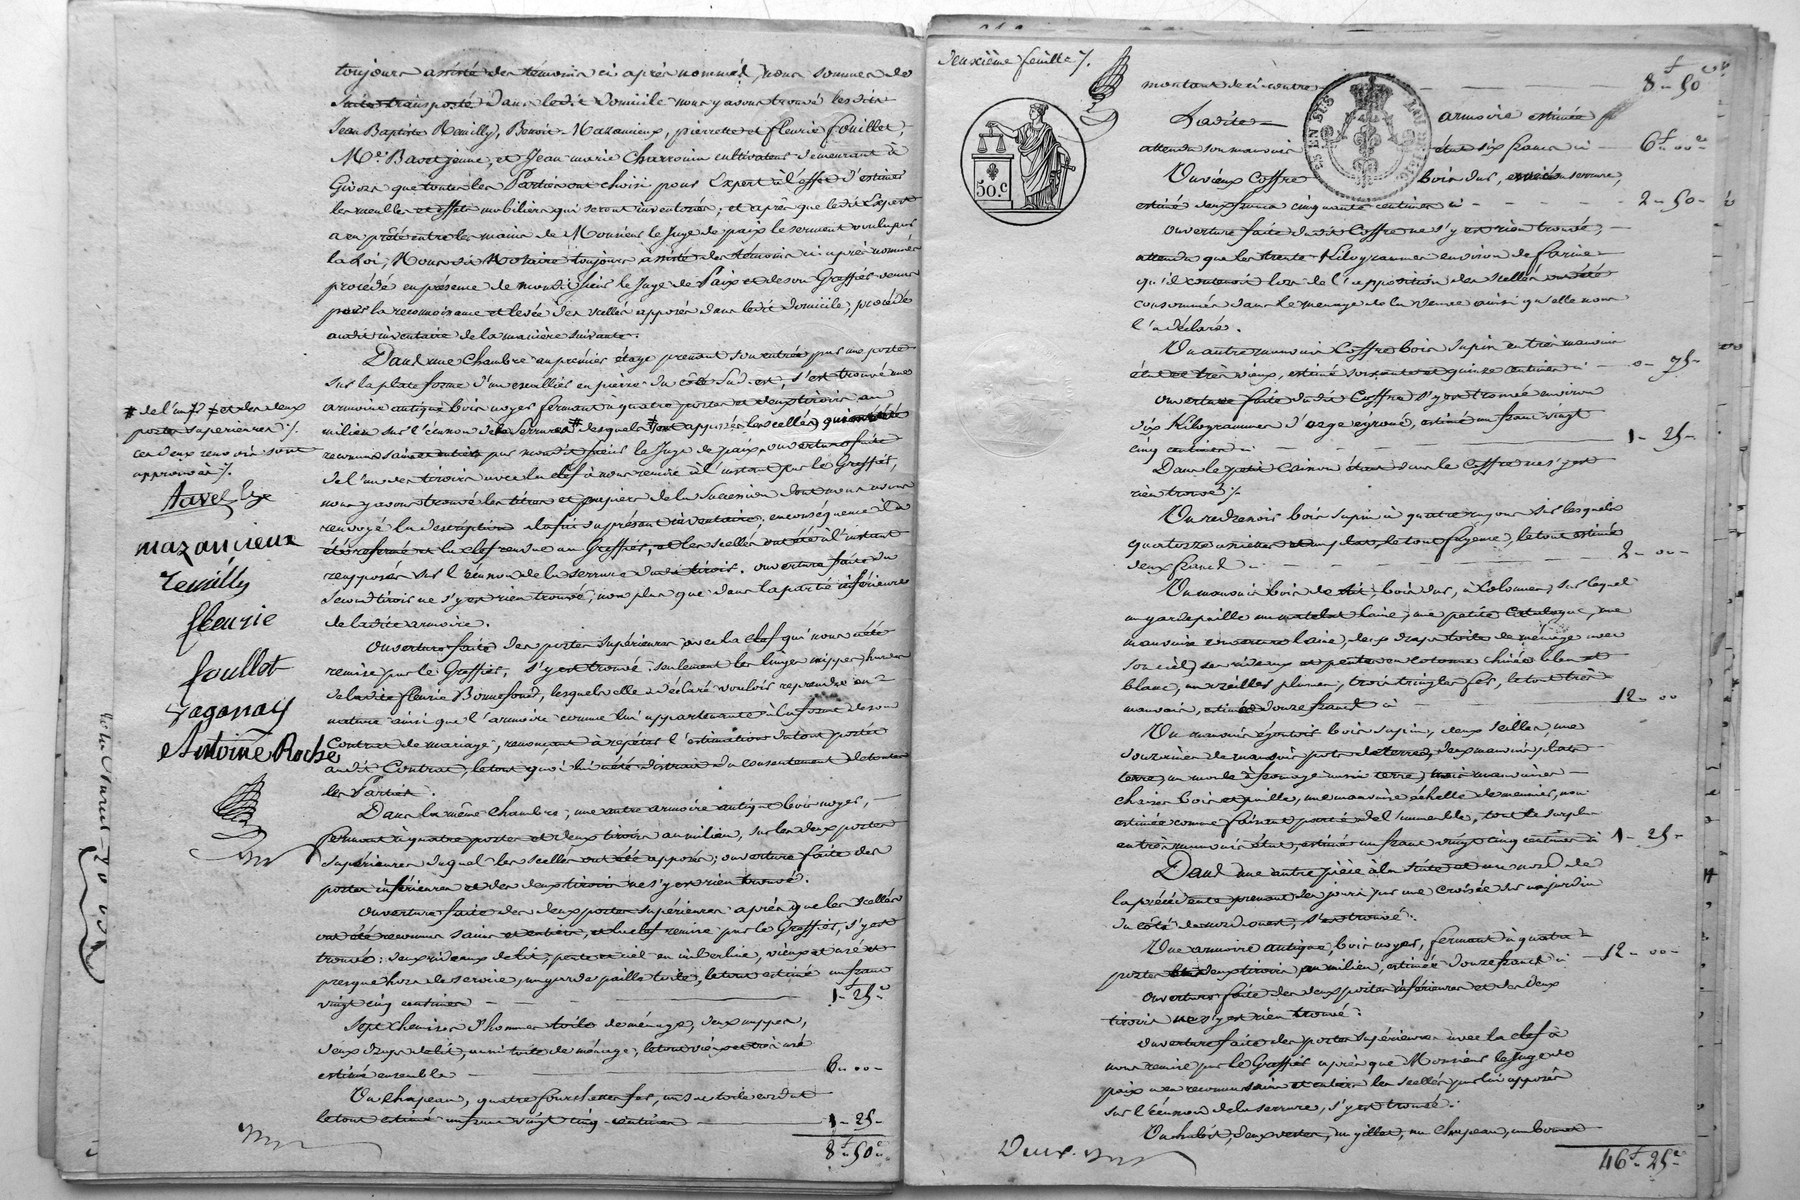 toujours assisté des témoins ci après nommés, nous sommes de
suite transporté dans ledit domicile nous y avons trouvé lesdits
Jean Baptiste Remilly, Benoit Mazancieux, pierrette et fleurie fouillet,
Me Bavet jeune, et Jean marie Charrouin cultivateur demeurant à
Givors que toutes les Parties ont choisi pour Expert à l'effet d'estimer
les meubles et effets mobiliers qui seront inventoriés; et après que ledit Expert
a eu prêté entre les mains de Monsieur le Juge de paix le serment voulu par
la Loi, Nous dit Notaire toujours assisté des témoins ci après nommés
procédé en présence de mondit sieur le Juge de Paix et de son Greffier venus
pour la reconnoissance et levée des scellés apposés dans ledit domicile, procédé
audit inventaire de la manière suivante.
Dans une Chambre au premier étage prenant son entrée par une porte
sur la plate forme d'un escallier en pierre du côté Sud-est, s'est trouvé une
armoire antique bois noyer fermant à quatre portes et deux tiroirs au
milieu sur l'écusson de la serrure # desquels sont apposés les scellés qui ont été
reconnus sains et entiers par mondit sieur le Juge de paix, ouverture faite
de l'un des tiroirs avec la clef à nous remise à l'instant par le Greffier,
nous y avons trouvé les titres et papiers de la Succession dont nous avons
renvoyé la description à la fin du présent inventaire; en conséquence il a
été refermé et la clef rendue au Greffier, et les scellés ont été à l'instant
reapposés sur l'écusson de la serrure dudit tiroir. ouverture faite du
second tiroir ne s'y est rien trouvé, non plus que dans la partie inférieure
de ladite armoire.
Ouverture faite des portes supérieures avec la clef qui nous a été
remise par le Greffier, s'y est trouvé seulement les linges nippes hardes
de ladite fleurie Bonnefond, lesquels elle a déclaré vouloir reprendre en
nature ainsi que l'armoire comme lui appartenante à la forme de son
Contrat de mariage, renonçant à répéter l'estimation du tout portée
audit Contrat, le tout quoi lui a été distrait du consentement de toutes
les Parties.
Dans la même Chambre; une autre armoire antique bois noyer,
fermant à quatre portes et deux tiroirs au milieu, sur les deux portes
supérieures duquel les scellés ont été apposés; ouverture faite des
portes inférieures et des deux tiroirs ne s'y est rien trouvé.
Ouverture faite des deux portes supérieures après que les scellés
ont été reconnus sains et entiers, et la clef remise par le Greffier, s'y est
trouvé: deux rideaux de lit, pente et ciel en indienne, vieux et usé et
presque hors de service, un garde paille toile, le tout estimé un franc
vingt cinq centimes 1f-25c
Sept chemises d'homme toile de ménage, deux nappes,
deux draps de lit, aussi toile de ménage, le tout vieux et très usé
estimé ensemble 6-00-
Un chapeau, quatre fourchettes fer, un sac toile cordat
le tout estimé un franc vingt cinq centimes 1-25-
8f-50c
# de l'un & et des deux
portes supérieures /.
ces deux renvois sont
approuvés /.
mazancieux
remilly
fleurie
foullet
Antoine Roche
deuxième feuille /.
50.c
montant de ci-contre 8f-50c
Ladite armoire estimée
attendu son mauvais état six francs ci 6f-00c
Un vieux Coffre bois dur, serrure,
estimé deux francs cinquante centimes ci 2-50-
Ouverture faite dudit Coffre ne s'y est rien trouvé,
attendu que les trente Kilogrammes environ de farine
qu'il contenait lors de l'apposition des scellés ont été
consommés dans le ménage de la veuve ainsi qu'elle nous
l'a déclaré.
Un autre mauvais Coffre bois sapin en très mauvais
état et très vieux, estimé soixante et quinze centimes ci 0-75-
Ouverture faite dudit Coffre s'y est trouvé environ
dix Kilogrammes d'orge égruné, estimé un franc vingt
cinq centimes ci 1-25-
Dans le petit Caisson étant dans le Coffre ne s'y est
rien trouvé /.
Un redressoir bois sapin à quatre rayons sur lesquels
quatorze assiettes et un plat, le tout fayence, le tout estimé
deux francs ci 2-00-
Un mauvais bois de lit, bois dur, à colonnes, sur lequel
un garde paille un matelat laine, une petite Catalogne, une
mauvaise couverture laine, deux draps toile de ménage avec
son ciel, ses rideaux et pentes en cotonne chinée bleu et
blanc, un oreiller plumes, trois tringles fer, le tout très
mauvais, estimé douze francs ci 12-00
Un mauvais égoutoir bois sapin, deux seilles, une
de terre, deux mauvais plats
terre, un moule à fromage aussi terre, trois mauvaises
chaises bois et paille, une mauvaise échelle de meunier, non
estimée comme faisant partie de l'immeuble, tout le surplus
en très mauvais état, estimé un franc vingt cinq centimes ci 1-25-
Dans une autre pièce à la suite et au nord de
la précédente prenant ses jours par une croisée sur un jardin
du côté du nord ouest, s'est trouvé:
Une armoire antique, bois noyer, fermant à quatre
portes et deux tiroirs au milieu, estimée douze francs ci 12-00-
Ouverture faite des deux portes inférieures et des deux
tiroirs ne s'y est rien trouvé:
Ouverture faite des portes supérieures avec la clef à
nous remise par le Greffier après que Monsieur le Juge de
paix a eu reconnu sains et entiers les scellés par lui apposés
sur l'écusson de la serrure, s'y est trouvé:
Un habit, deux vestes, un gillet, un chapeau, un bonnet
46f-25c